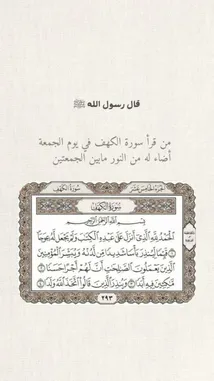 قال رسول الله ﷺ
من قرأ سورة الكهف في يوم الجمعة
أضاء له من النور مابين الجمعتين
سورة الكهف
الجزء الخامس عشر
سورة الكهف
بسم الله الرحمن الرحيم
الحمد لله الذي أنزل على عبده الكتب ولم يجعل له عوجا
قيما لينذر بأسا شديدا من لدنه ويبشر المؤمنين
الذين يعملون الصلحت أن لهم أجرا حسنا
مكثين فيه أبدا وينذر الذين قالوا اتخذ الله ولدا
٢٩٣